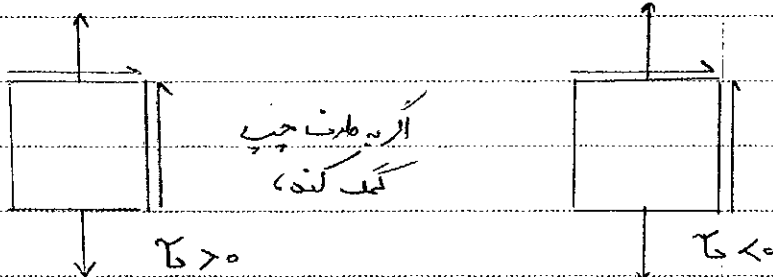 اگر به طرف چپ
کمک کند،
τ > ۰
τ < ۰